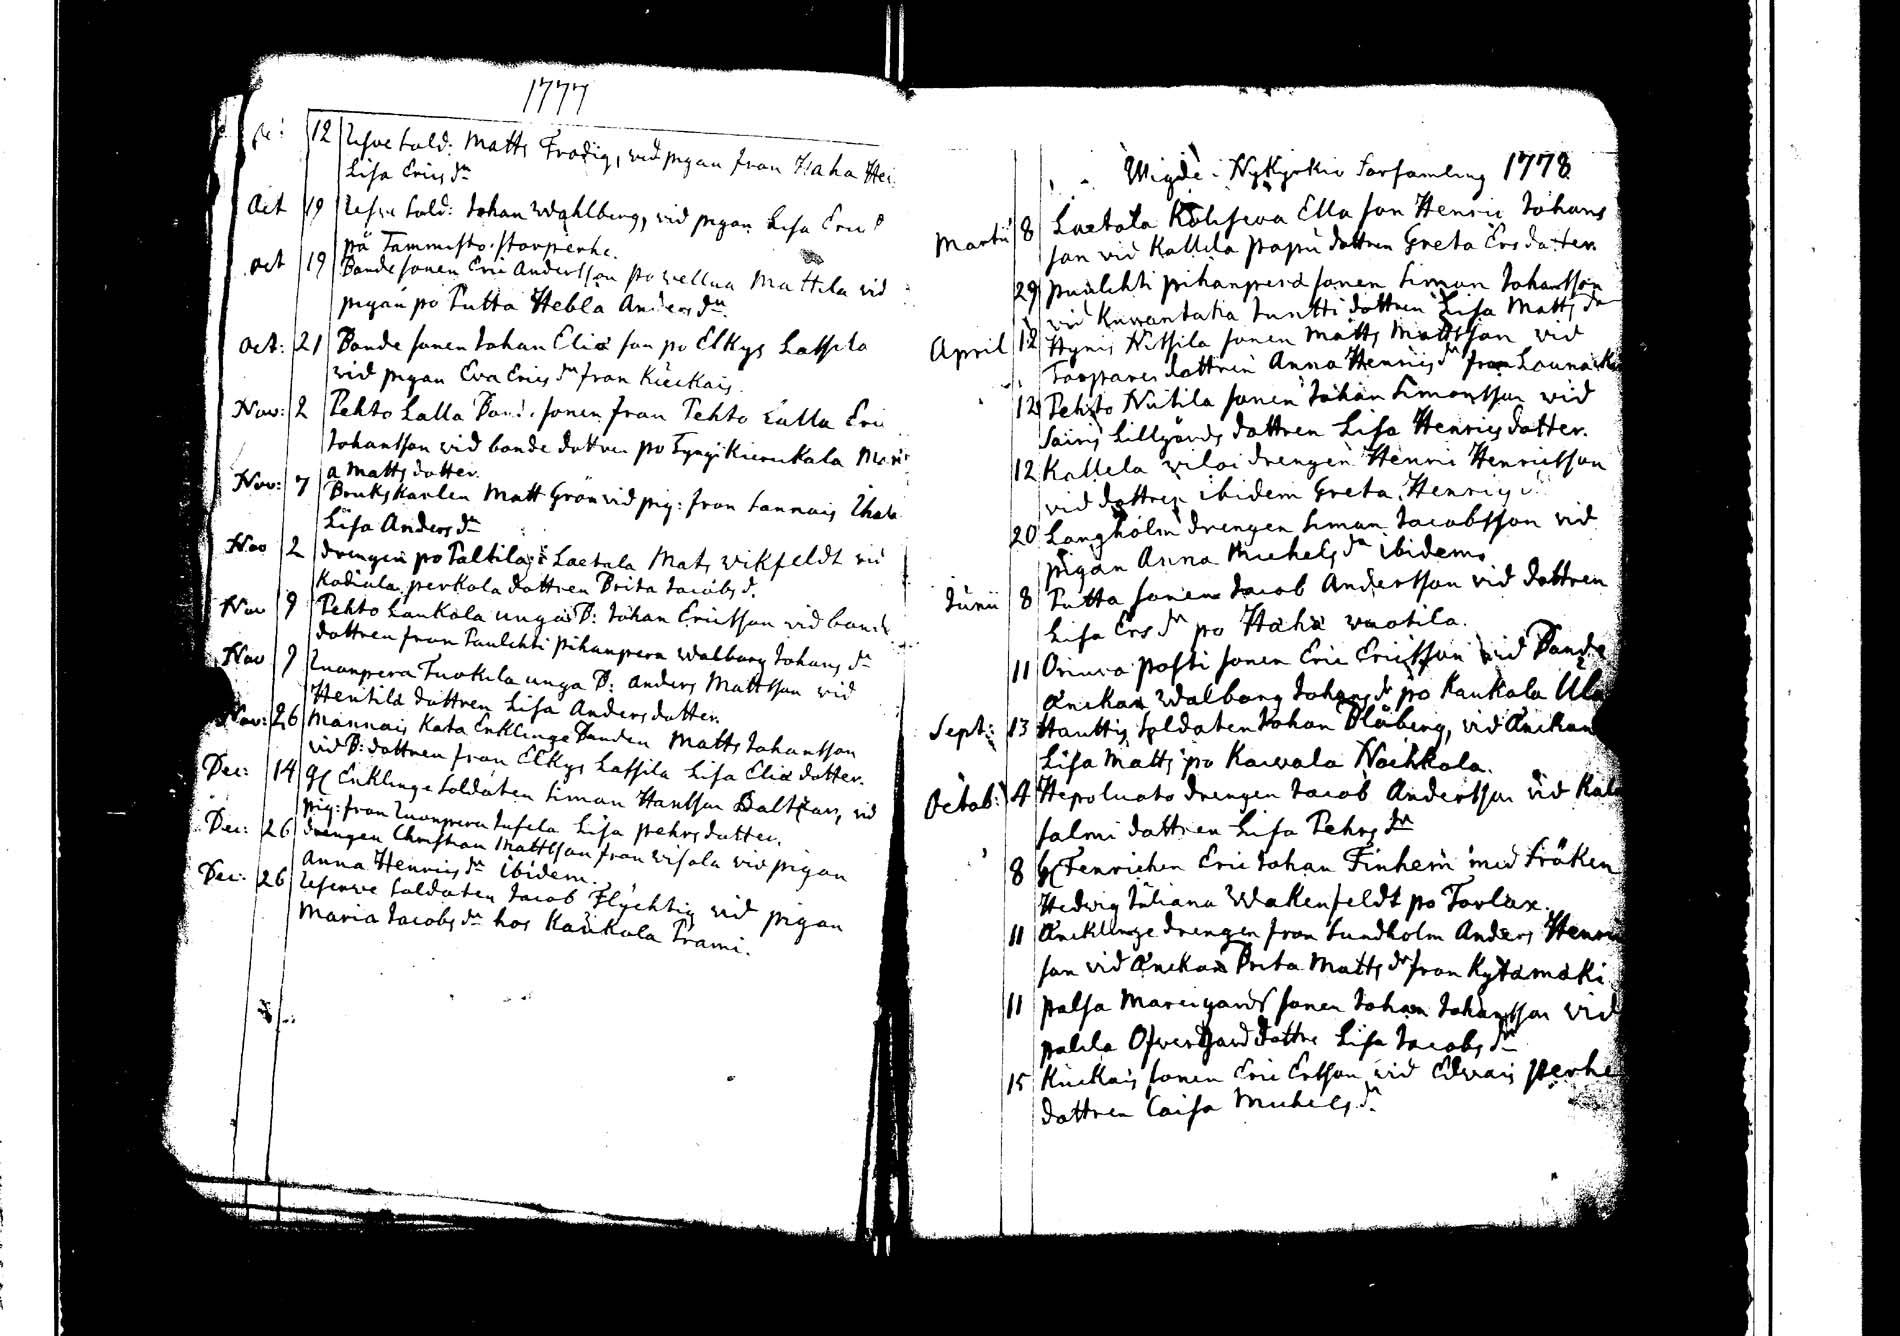 1777
12 Resve Sold: Matts Frodig, vid pigan fron Haha Hei
Lisa Erics dr
Oct 19 Resve Sold: Johan Wahlberg, vid pigan Lisa Erics
på Tammisto storperhe.
oct 19 Bondesonen Eric Andersson po wellua Mattila vid
pigan po Putta Hebla Anders dr.
Oct: 21 Bonde sonen Johan Eliæ son po Elkys Lassila
vid pigan Eva Erics dr fron Kiickais.
Nov: 2 Pehto Lalla Bond. sonen fron Pehto Lalla Eric
Johansson vid bonde dottren po Tyngi Kierickala Mari
a Matts dotter.
Nov: 7 Brukskarlen Matt Grön vid pig: fron Sannais
Lisa Anders dr
Nov 2 drengen po Paltila i Laetala Mats Wikfeldt vid
Kodiala perkola dottren Brita Jacobs d.
Nov 9 Pehto Laukola unga B: Johan Ericsson vid bonde
dottren fron Paulehti pihanpera Walborg Johans dr
Nov 9 Ruonpera Tuokila unga B: Anders Mattsson vid
Hentila dottren Lisa Anders dotter.
Nov: 26 Mannais Kata Enklinge Bonden Matts Johansson
vid B: dottren fron Elkys Lassila Lisa Eliæ dotter.
Dec: 14 Enklinge Soldaten Simon Hansson Baltzar, vid
pig: fron Ruonpera Tusela Lisa pehrs dotter.
Dec: 26 drengen Christian Mattsson fron Wisala vid pigan
Anna Henrics dr ibidem.
Dec: 26 Reserve Soldaten Jacob Flychtig vid pigan
Maria Jacobs dr hos Kaukola Prami.
Wigde i Nykyrkio Forsamling 1778
Martii 8 Laetala Koliseva Ella son Henric Johans
son vid Kallila papu dottren Greta Ers dotter.
29 puulehti pihanperä sonen Simon Johansson
vid Kuwantaka Juntti dottren Lisa Matts dr
April 12 Hynis Nissila sonen Matts Mattsson vid
Torpares dottren Anna Henrics dr fron Launa
12 Pehto Nutila sonen Johan Simonsson vid
Sairis Lillgårds dottren Lisa Henrics dotter.
12 Kallela wilai drengen Henric Henricsson
vid dottren ibidem Greta Henrics
20 Langholm drengen Simon Jacobsson vid
pigan Anna Michels dr ibidem.
Junii 8 Putta sonen Jacob Andersson vid dottren
Lisa Ers dr po Haha vuotila.
11 Oriura posti sonen Eric Ericsson vid Bonde
Änckan Walborg Johans dr po Kaukola Ula
Sept: 13 Hauttis Soldaten Johan Blåberg, vid Änckan
Lisa Matts po Kawala Nackola.
Octob: 4 Hepoluoto drengen Jacob Andersson vid Kala
salmi dottren Lisa Pehrs dr
8 Fenrichen Eric Johan Finhem med Fröken
Hedvig Juliana Wakenfeldt po Torlax.
11 Äncklinge drengen fron Sundholm Anders Henric
son vid Änckan Brita Matts dr fron Kytämäki
11 palsa Marcigards sonen Johan Johansson vid
palila Öfvergard dottre Lisa Jacobs dr
15 Kiickais sonen Eric Ersson vid Edvais perhe
dottren Caisa Michels dr.